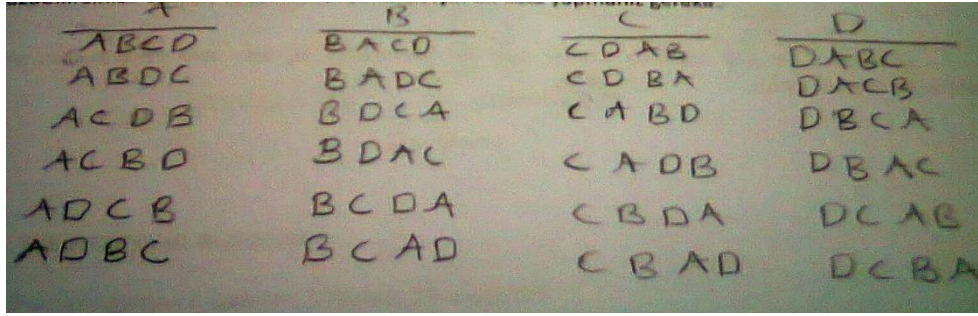 A B C D
ABCD BACD CDAB DABC
ABDC BADC CDBA DACB
ACDB BDCA CABD DBCA
ACBD BDAC CADB DBAC
ADCB BCDA CBDA DCAB
ADBC BCAD CBAD DCBA